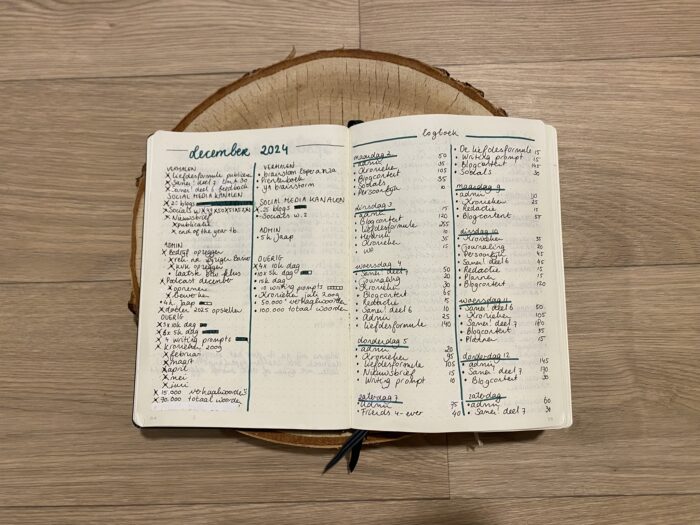 december 2024
VERHALEN
x Liefdesformule publicen
x Samei deel 6 feedback
SOCIAL MEDIA KANALEN
x 25 blogs
x Socials
x Nieuwsbrief
x publicatie
x end of the year tb.
ADMIN
x Bedrijf opzeggen
x kvk opzeggen
x laatste btw
x Podcast december
x opnemen
x bewerken
x 4k jaap
x doelen 2025 opstellen
OVERIG
x 5x 10k dag
x 8x 5k dag
x 4 writing prompts
x Kronieken 2009
x februari
x maart
x april
x mei
x juni
x 15.000 verhaalwoorden
x 90.000 totaal woorden
VERHALEN
• brainstorm
• Plentenboek
• YA brainstorm
SOCIAL MEDIA KANALEN
x 25 blogs
• Socials w. 2
ADMIN
• 5k jaap
OVERIG
x 4x 10k dag
x 10x 5k dag
• 15k dag
• 10 writing prompts
• Kronieken juli 2009
• 50.000 verhaalwoorden
• 100.000 totaal woorden
logboek
maandag 2
• admin 50
• Kronieken 35
• Blogcontent 105
• Socials 35
• Persoonlijk 10
dinsdag 3
• admin 15
• Blogcontent 120
• Liefdesformule 255
• Kronieken 15
woensdag 4
• Samei deel 7 50
• Journaling 20
• Kronieken 30
• Blogcontent 65
• Redactie 15
• Samei deel 6 10
• Admin 25
• Liefdesformule 190
donderdag 5
• admin 20
• Kronieken 95
• Liefdesformule 105
• Nieuwsbrief 15
• Writing prompt 10
zaterdag 7
• admin 75
• Friends 4-ever 40
• De liefdesformule 15
• Writing prompt 15
• Blogcontent 15
• Socials 30
maandag 9
• admin
• Kronieken 25
• Redactie 15
• Blogcontent 55
dinsdag 10
• Kronieken 35
• Journaling 20
• Persoonlijk 45
• Samei deel 6 65
• Redactie 15
• Planner 15
• Blogcontent 120
woensdag 11
• Samei deel 6 50
• Kronieken 105
• Samei deel 7
• Blogcontent 35
• Planner 15
donderdag 12
• admin 145
• Samei deel 7 170
• Blogcontent 30
zaterdag
• admin 60
• Samei deel 7 30